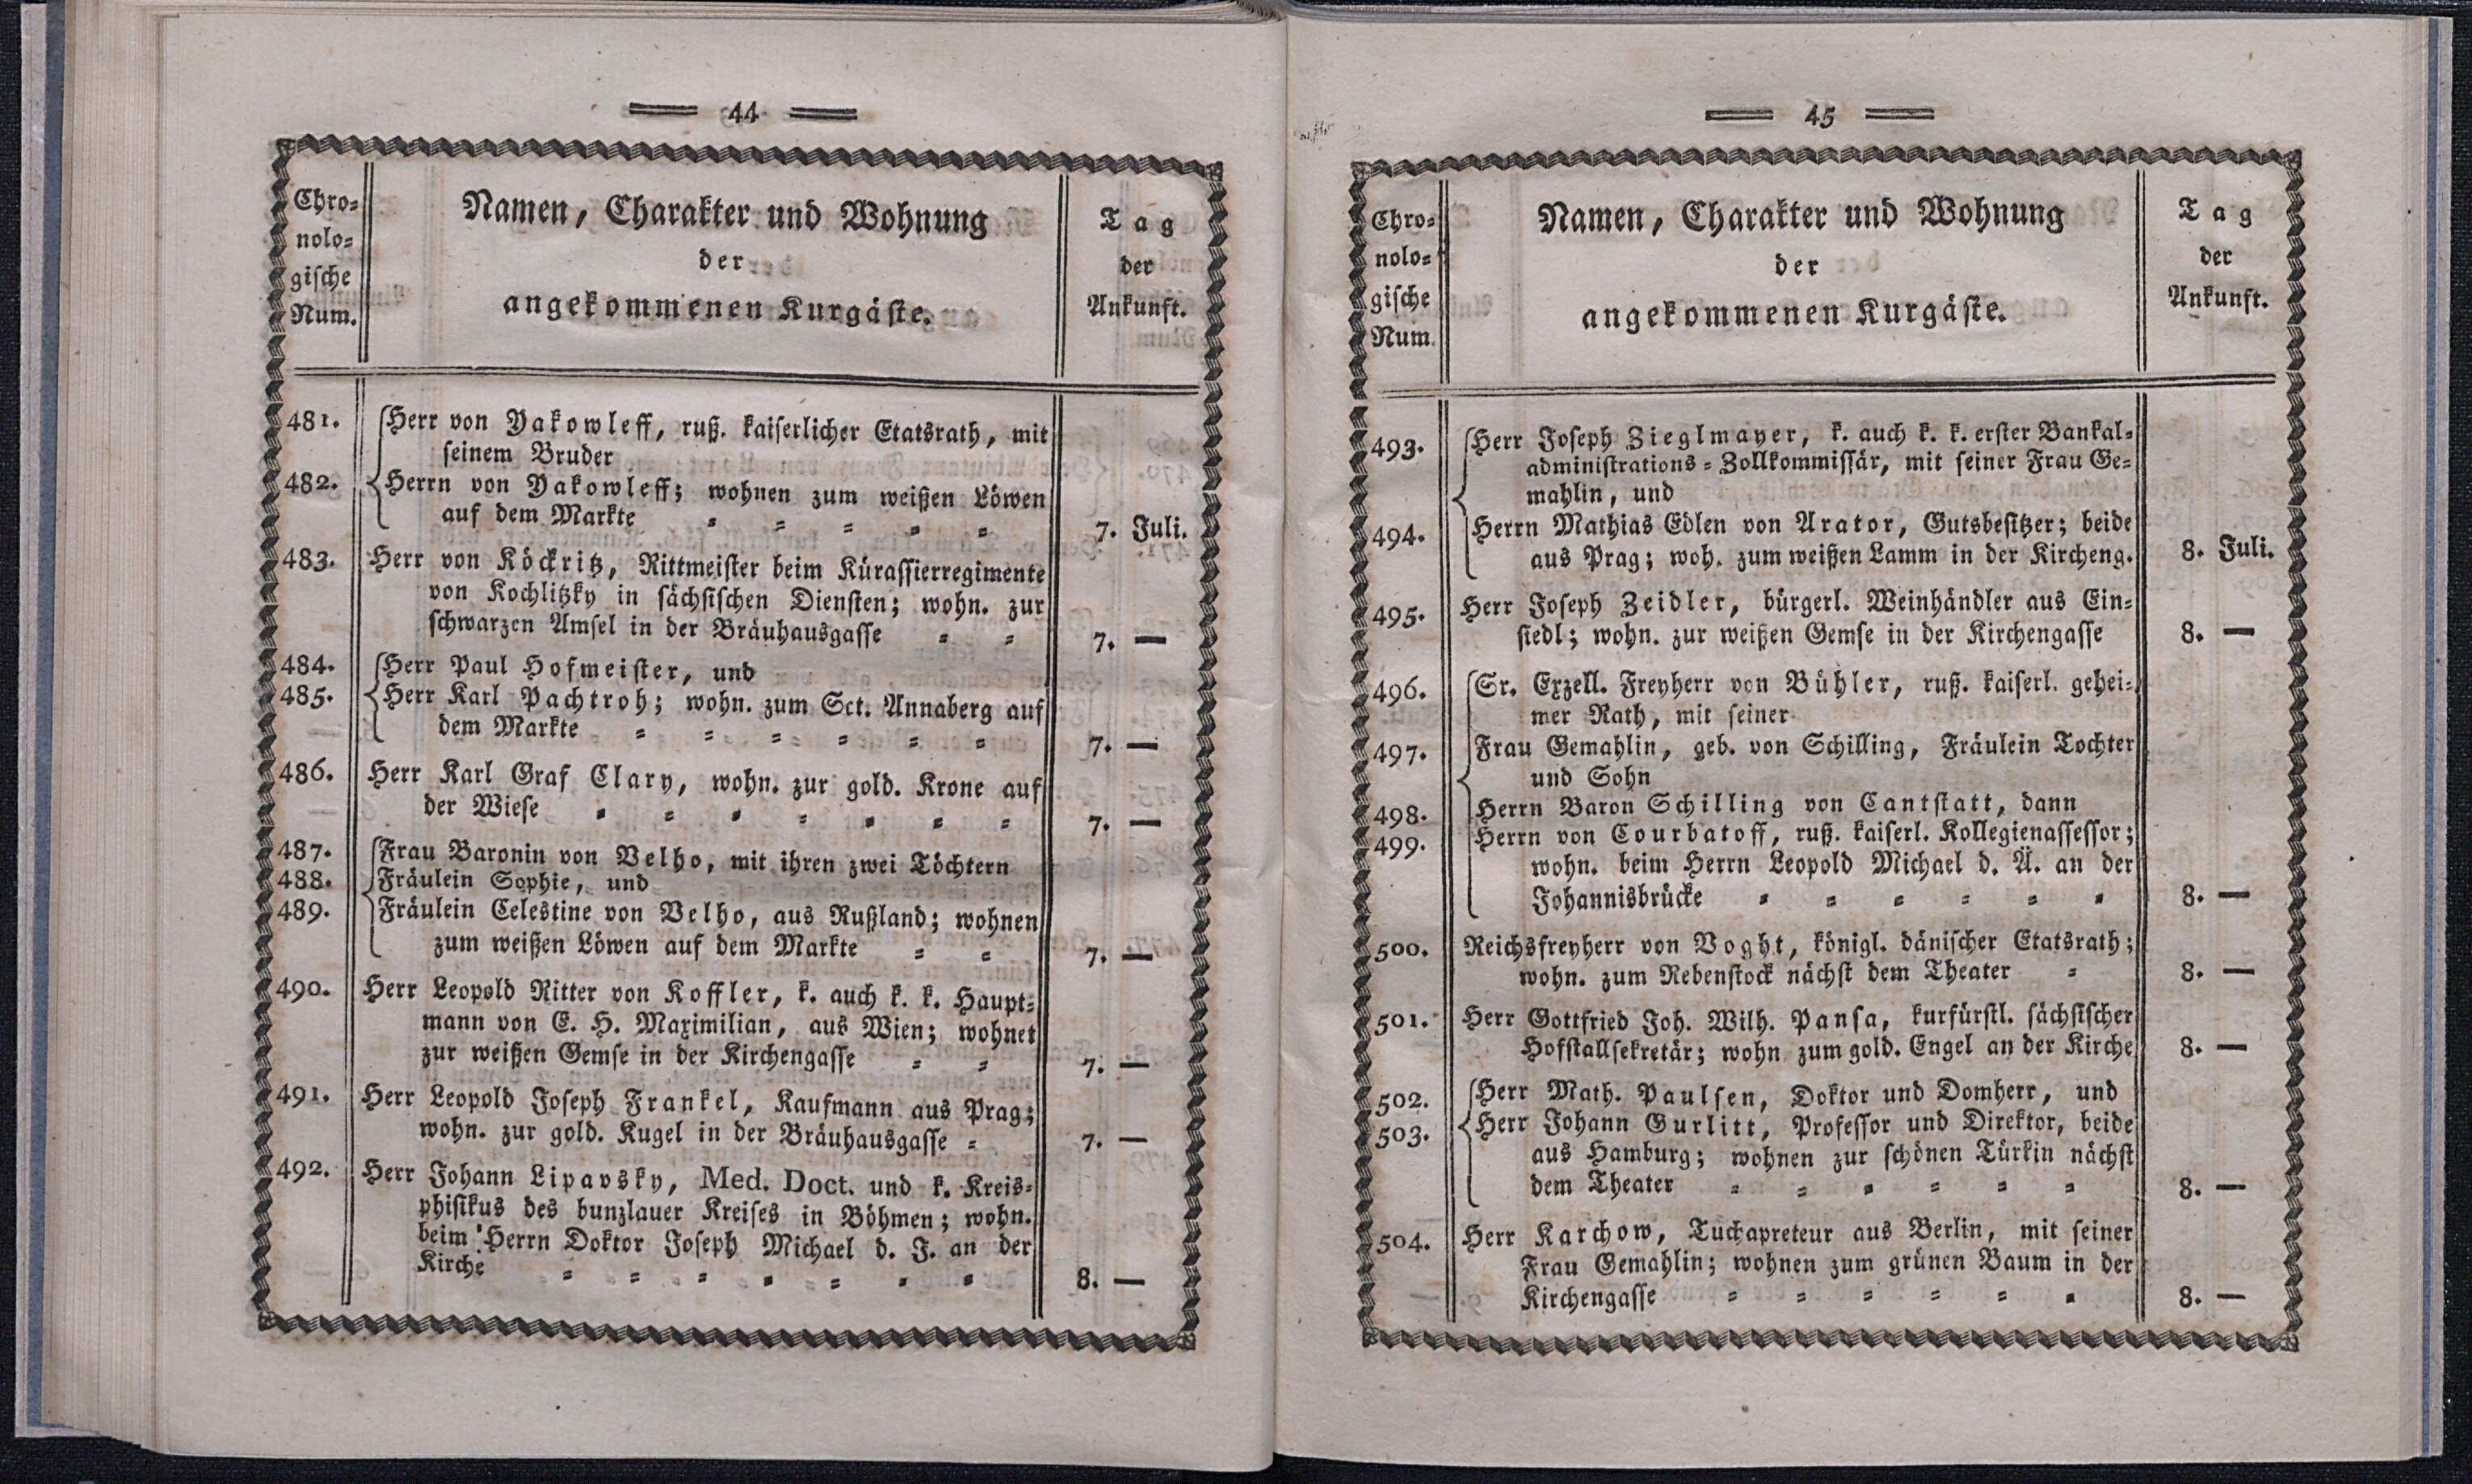 44
Chro-
nolo-
gische
Num.
Namen, Charakter und Wohnung
der
angekommenen Kurgäste.
Tag
der
Ankunft.
481. Herr von Yakowleff, ruß. kaiserlicher Etatsrath, mit
seinem Bruder
482. Herrn von Yakowleff; wohnen zum weißen Löwen
auf dem Markte = = = = = 7. Juli.
483. Herr von Köckritz, Rittmeister beim Kürassierregimente
von Kochlitzky in sächsischen Diensten; wohn. zur
schwarzen Amsel in der Bräuhausgasse = = 7. —
484. Herr Paul Hofmeister, und
485. Herr Karl Pachtroh; wohn. zum Sct. Annaberg auf
dem Markte = = = = = = 7. —
486. Herr Karl Graf Clary, wohn. zur gold. Krone auf
der Wiese = = = = = = = 7. —
487. Frau Baronin von Velho, mit ihren zwei Töchtern
488. Fräulein Sophie, und
489. Fräulein Celestine von Velho, aus Rußland; wohnen
zum weißen Löwen auf dem Markte = = 7. —
490. Herr Leopold Ritter von Koffler, k. auch k. k. Haupt-
mann von E. H. Maximilian, aus Wien; wohnet
zur weißen Gemse in der Kirchengasse = = 7. —
491. Herr Leopold Joseph Frankel, Kaufmann aus Prag;
wohn. zur gold. Kugel in der Bräuhausgasse = 7. —
492. Herr Johann Lipavsky, Med. Doct. und k. Kreis-
phisikus des bunzlauer Kreises in Böhmen; wohn.
beim Herrn Doktor Joseph Michael d. J. an der
Kirche = = = = = = = 8. —
45
Chro-
nolo-
gische
Num.
Namen, Charakter und Wohnung
der
angekommenen Kurgäste.
Tag
der
Ankunft.
493. Herr Joseph Zieglmayer, k. auch k. k. erster Bankal-
administrations-Zollkommissär, mit seiner Frau Ge-
mahlin, und
494. Herrn Mathias Edlen von Arator, Gutsbesitzer; beide
aus Prag; woh. zum weißen Lamm in der Kircheng. 8. Juli.
495. Herr Joseph Zeidler, bürgerl. Weinhändler aus Ein-
siedl; wohn. zur weißen Gemse in der Kirchengasse 8. —
496. Sr. Exzell. Freyherr von Bühler, ruß. kaiserl. gehei-
mer Rath, mit seiner
497. Frau Gemahlin, geb. von Schilling, Fräulein Tochter
und Sohn
498. Herrn Baron Schilling von Cantstatt, dann
499. Herrn von Courbatoff, ruß. kaiserl. Kollegienassessor;
wohn. beim Herrn Leopold Michael d. Ä. an der
Johannisbrücke = = = = = = 8. —
500. Reichsfreyherr von Voght, königl. dänischer Etatsrath;
wohn. zum Rebenstock nächst dem Theater = 8. —
501. Herr Gottfried Joh. Wilh. Pansa, kurfürstl. sächsischer
Hofstallsekretär; wohn zum gold. Engel an der Kirche 8. —
502. Herr Math. Paulsen, Doktor und Domherr, und
503. Herr Johann Gurlitt, Professor und Direktor, beide
aus Hamburg; wohnen zur schönen Türkin nächst
dem Theater = = = = = = 8. —
504. Herr Karchow, Tuchapreteur aus Berlin, mit seiner
Frau Gemahlin; wohnen zum grünen Baum in der
Kirchengasse = = = = = = 8. —